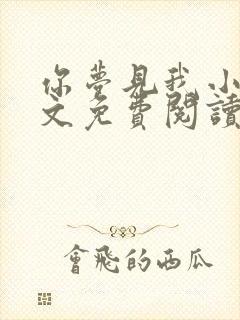 你夢見我小
文免費閱讀
會飛的西瓜